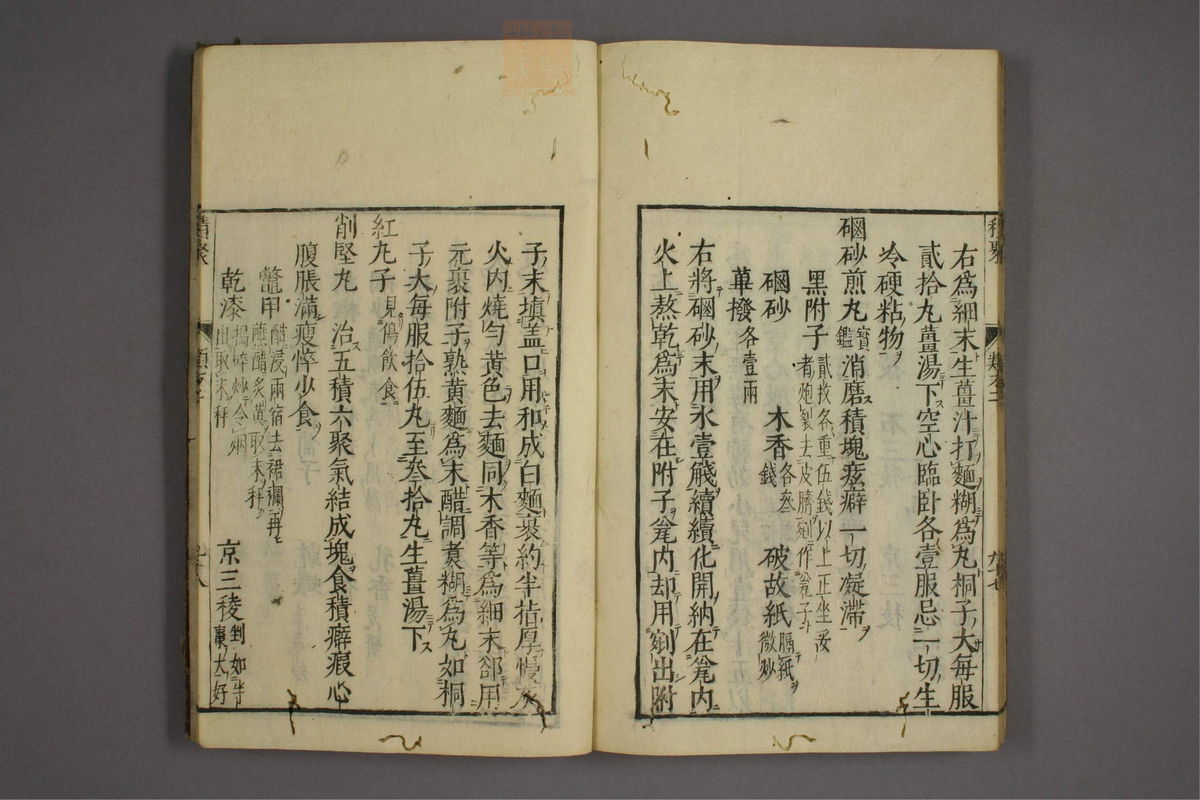 積聚
右爲細末生薑汁打麵糊爲丸桐子大每服
貳拾丸薑湯下空心臨卧各壹服忌一切生
冷硬粘物
硇砂煎丸寶鑑消磨積塊痃癖一切凝滯
黑附子貳枚各重伍錢以上正坐妥者炮製去皮臍剜作瓮子
硇砂 木香各叁錢 破故紙隔紙微炒
蓽撥各壹兩
右將硇砂末用水壹觥續續化開納在瓮內
火上熬乾爲末安在附子瓮內却用剜出附
子末填盖口用和成白麵裹約半指厚慢
火內燒勻黃色去麵同木香等爲細末郤用
元裹附子熟黃麵爲末醋調煑糊爲丸如桐
子大每服拾伍丸至叁拾丸生薑湯下
紅丸子見傷飮食
削堅丸 治五積六聚氣結成塊食積癖瘕心
腹脹滿瘦悴少食
鼈甲醋浸兩宿去裙襴再蘸醋炙黃取末秤 京三稜剉如半棗大好
乾漆搗碎炒令烟出取末秤
積聚